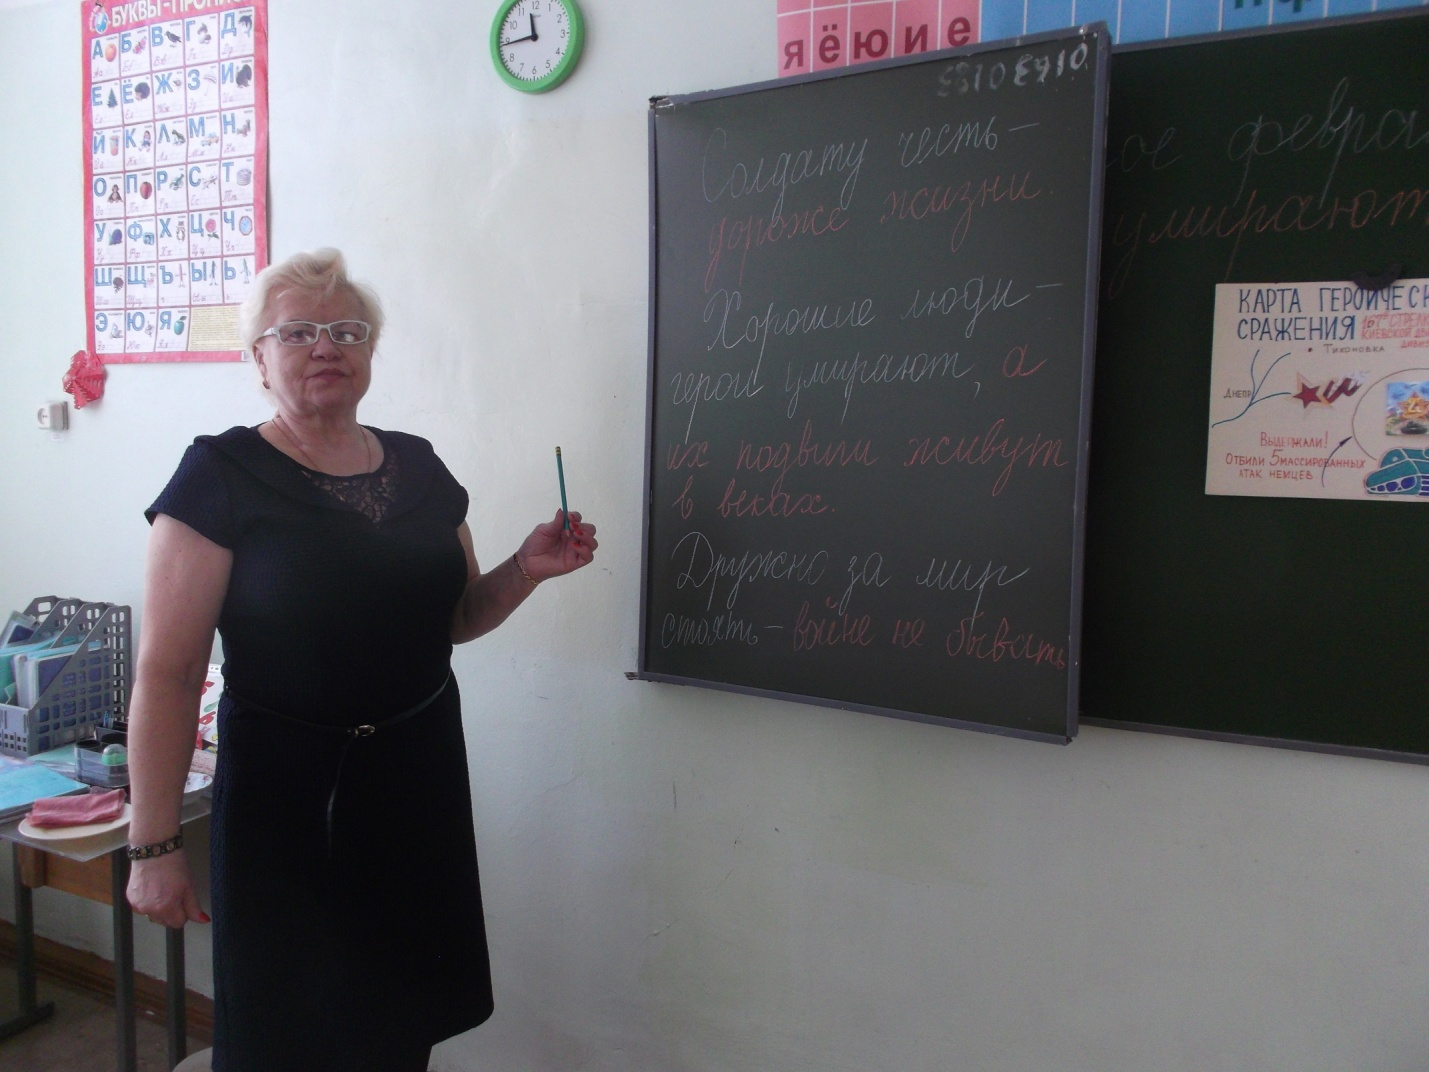 БУКВЫ-ПРОПИСИ
А Б В Г Д
Е Ё Ж З И
Й К Л М Н
О П Р С Т
У Ф Х Ц Ч
Ш Щ Ъ Ы Ь
Э Ю Я
12 1 2 3 4 5 6 7 8 9 10 11
я ё ю и е
Солдату честь –
дороже жизни.
Хорошие люди –
герои умирают, а
их подвиги живут
в веках.
Дружно за мир
стоять – войне не бывать
ое февра
умирают
КАРТА ГЕРОИЧЕСК
СРАЖЕНИЯ
КИЕВСКОЙ
Тихоновка
ДНЕПР
ВЫДЕРЖАЛИ!
ОТБИЛИ 5 МАССИРОВАННЫХ
АТАК НЕМЦЕВ